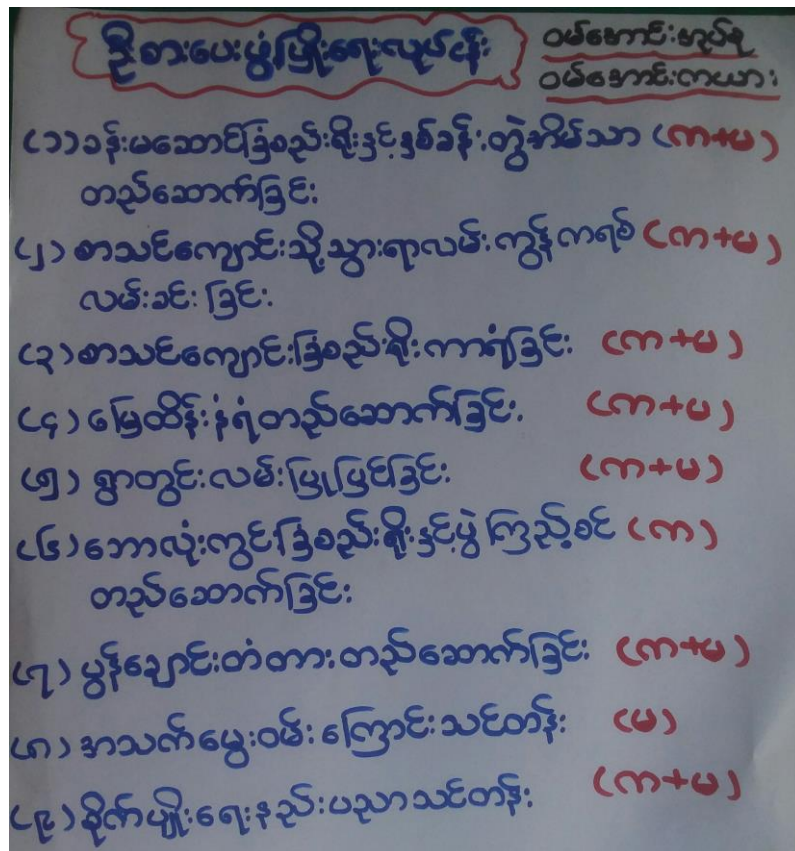 ဦးစားပေးဖွံ့ဖြိုးရေးလုပ်ငန်း
ဝမ်အောင်းအုပ်စု
ဝမ်အောင်းကယား
(၁) ခန်းမဆောင်ခြံစည်းရိုးနှင့်နှစ်ခန်းတွဲအိမ်သာ (က+မ)
တည်ဆောက်ခြင်း
(၂) စာသင်ကျောင်းသို့သွားရာလမ်းကွန်ကရစ် (က+မ)
လမ်းခင်းခြင်း
(၃) စာသင်ကျောင်းခြံစည်းရိုးကာရံခြင်း (က+မ)
(၄) မြေထိန်းနံရံတည်ဆောက်ခြင်း (က+မ)
(၅) ရွာတွင်းလမ်းပြုပြင်ခြင်း (က+မ)
(၆) ဘောလုံးကွင်းခြံစည်းရိုးနှင့်ပွဲကြည့်စင် (က)
တည်ဆောက်ခြင်း
(၇) မွန်ချောင်းတံတားတည်ဆောက်ခြင်း (က+မ)
(၈) အသက်မွေးဝမ်းကြောင်းသင်တန်း (မ)
(၉) စိုက်ပျိုးရေးနည်းပညာသင်တန်း (က+မ)